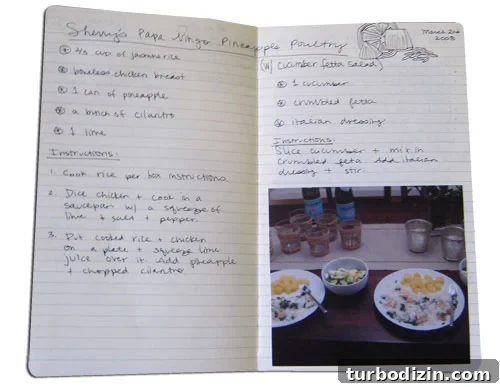 Sherry's Papa Ningo Pineapple Poultry
⅔ cup of jasmine rice
boneless chicken breast
1 can of pineapple
a bunch of cilantro
1 lime
Instructions:
1. Cook rice per box instructions.
2. Dice chicken + cook in a
saucepan w/ a squeeze of
lime + salt + pepper.
3. Put cooked rice + chicken
on a plate + squeeze lime
juice over it. Add pineapple
+ chopped cilantro
March 2nd
2008
(w/ cucumber fetta salad)
1 cucumber
crumbled fetta
italian dressing
Instructions:
Slice cucumber + mix in
crumbled feta. Add italian
dressing + stir.
turbodizin.com